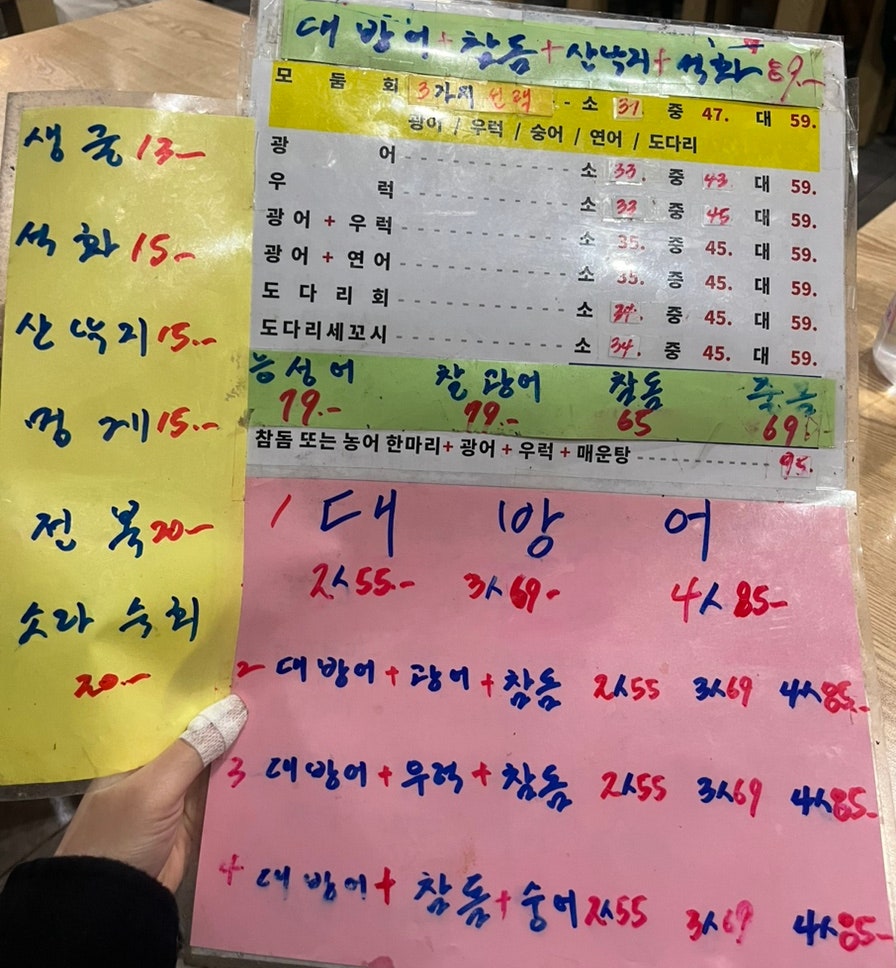 생굴 13-
석화 15-
산낙지 15.-
멍게 15.-
전복 20-
소라숙회
20.-
대방어+참돔+산낙지+석화 89.-
모둠회 3가지 선택 -- 소 37. 중 47. 대 59.
광어 / 우럭 / 숭어 / 연어 / 도다리
광어 소 33. 중 43 대 59.
우럭 소 33 중 45 대 59.
광어 + 우럭 소 35. 중 45. 대 59.
광어 + 연어 소 35. 중 45. 대 59.
도다리회 소 34. 중 45. 대 59.
도다리세꼬시 소 34. 중 45. 대 59.
능성어 찰광어 참돔 줄돔
79.- 79.- 65 69.-
참돔 또는 농어 한마리+ 광어 + 우럭 + 매운탕 95.
1 대방어
2人55- 3人69- 4人85-
2 대방어+광어+참돔 2人55 3人69 4人85.
3 대방어+우럭+참돔 2人55 3人69 4人85-
4 대방어+참돔+숭어 2人55 3人69 4人85-